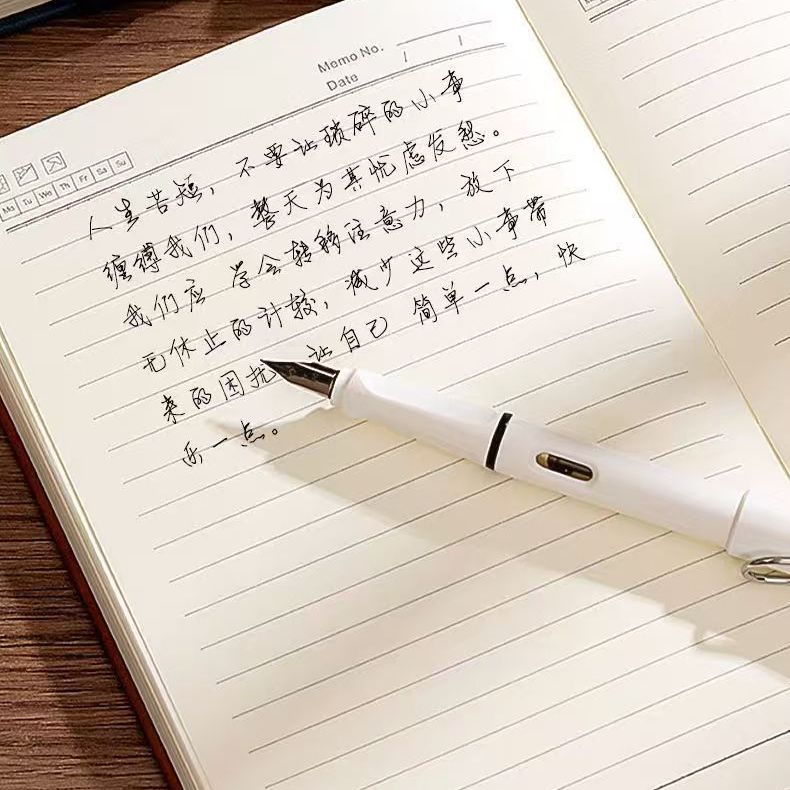 Memo No.
Date / /
Mo Tu We Th Fr Sa Su
人生苦短，不要让琐碎的小事
缠缚我们，整天为其忧虑发愁。
我们应学会转移注意力，放下
无休止的计较，减少这些小事带
来的困扰，让自己简单一点，快
乐一点。